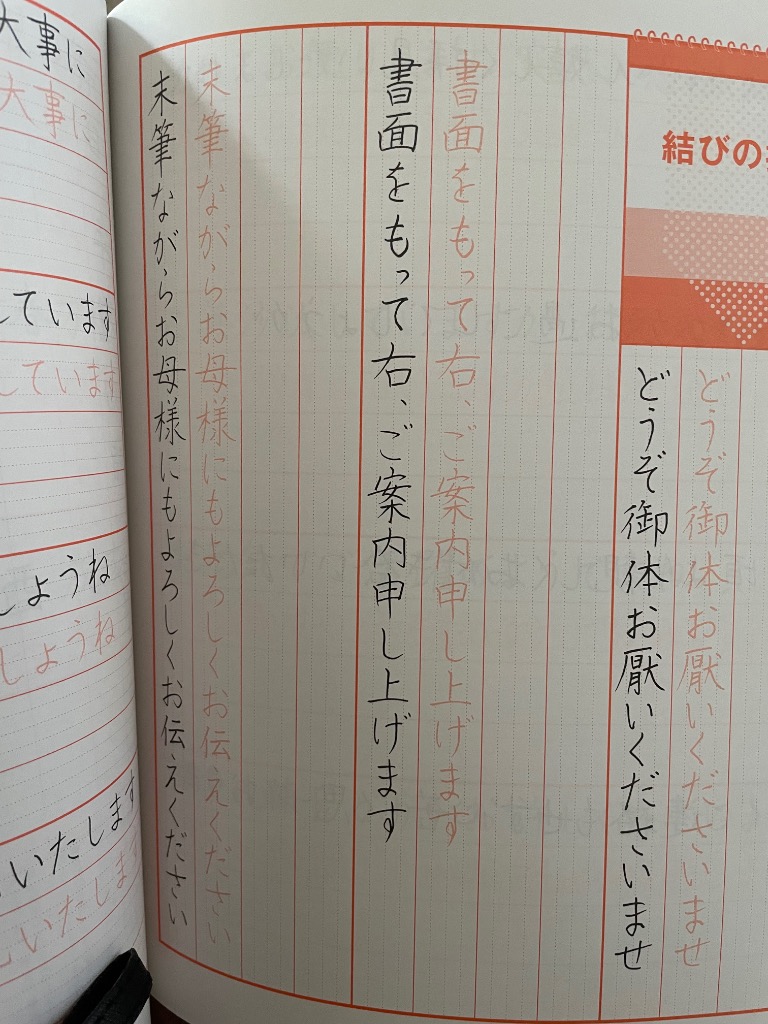 結びの
どうぞ御体お厭いくださいませ
どうぞ御体お厭いくださいませ
書面をもって右、ご案内申し上げます
書面をもって右、ご案内申し上げます
末筆ながらお母様にもよろしくお伝えください
末筆ながらお母様にもよろしくお伝えください
大事に
大事に
しています
しています
しょうね
しょうね
いたします
いたします